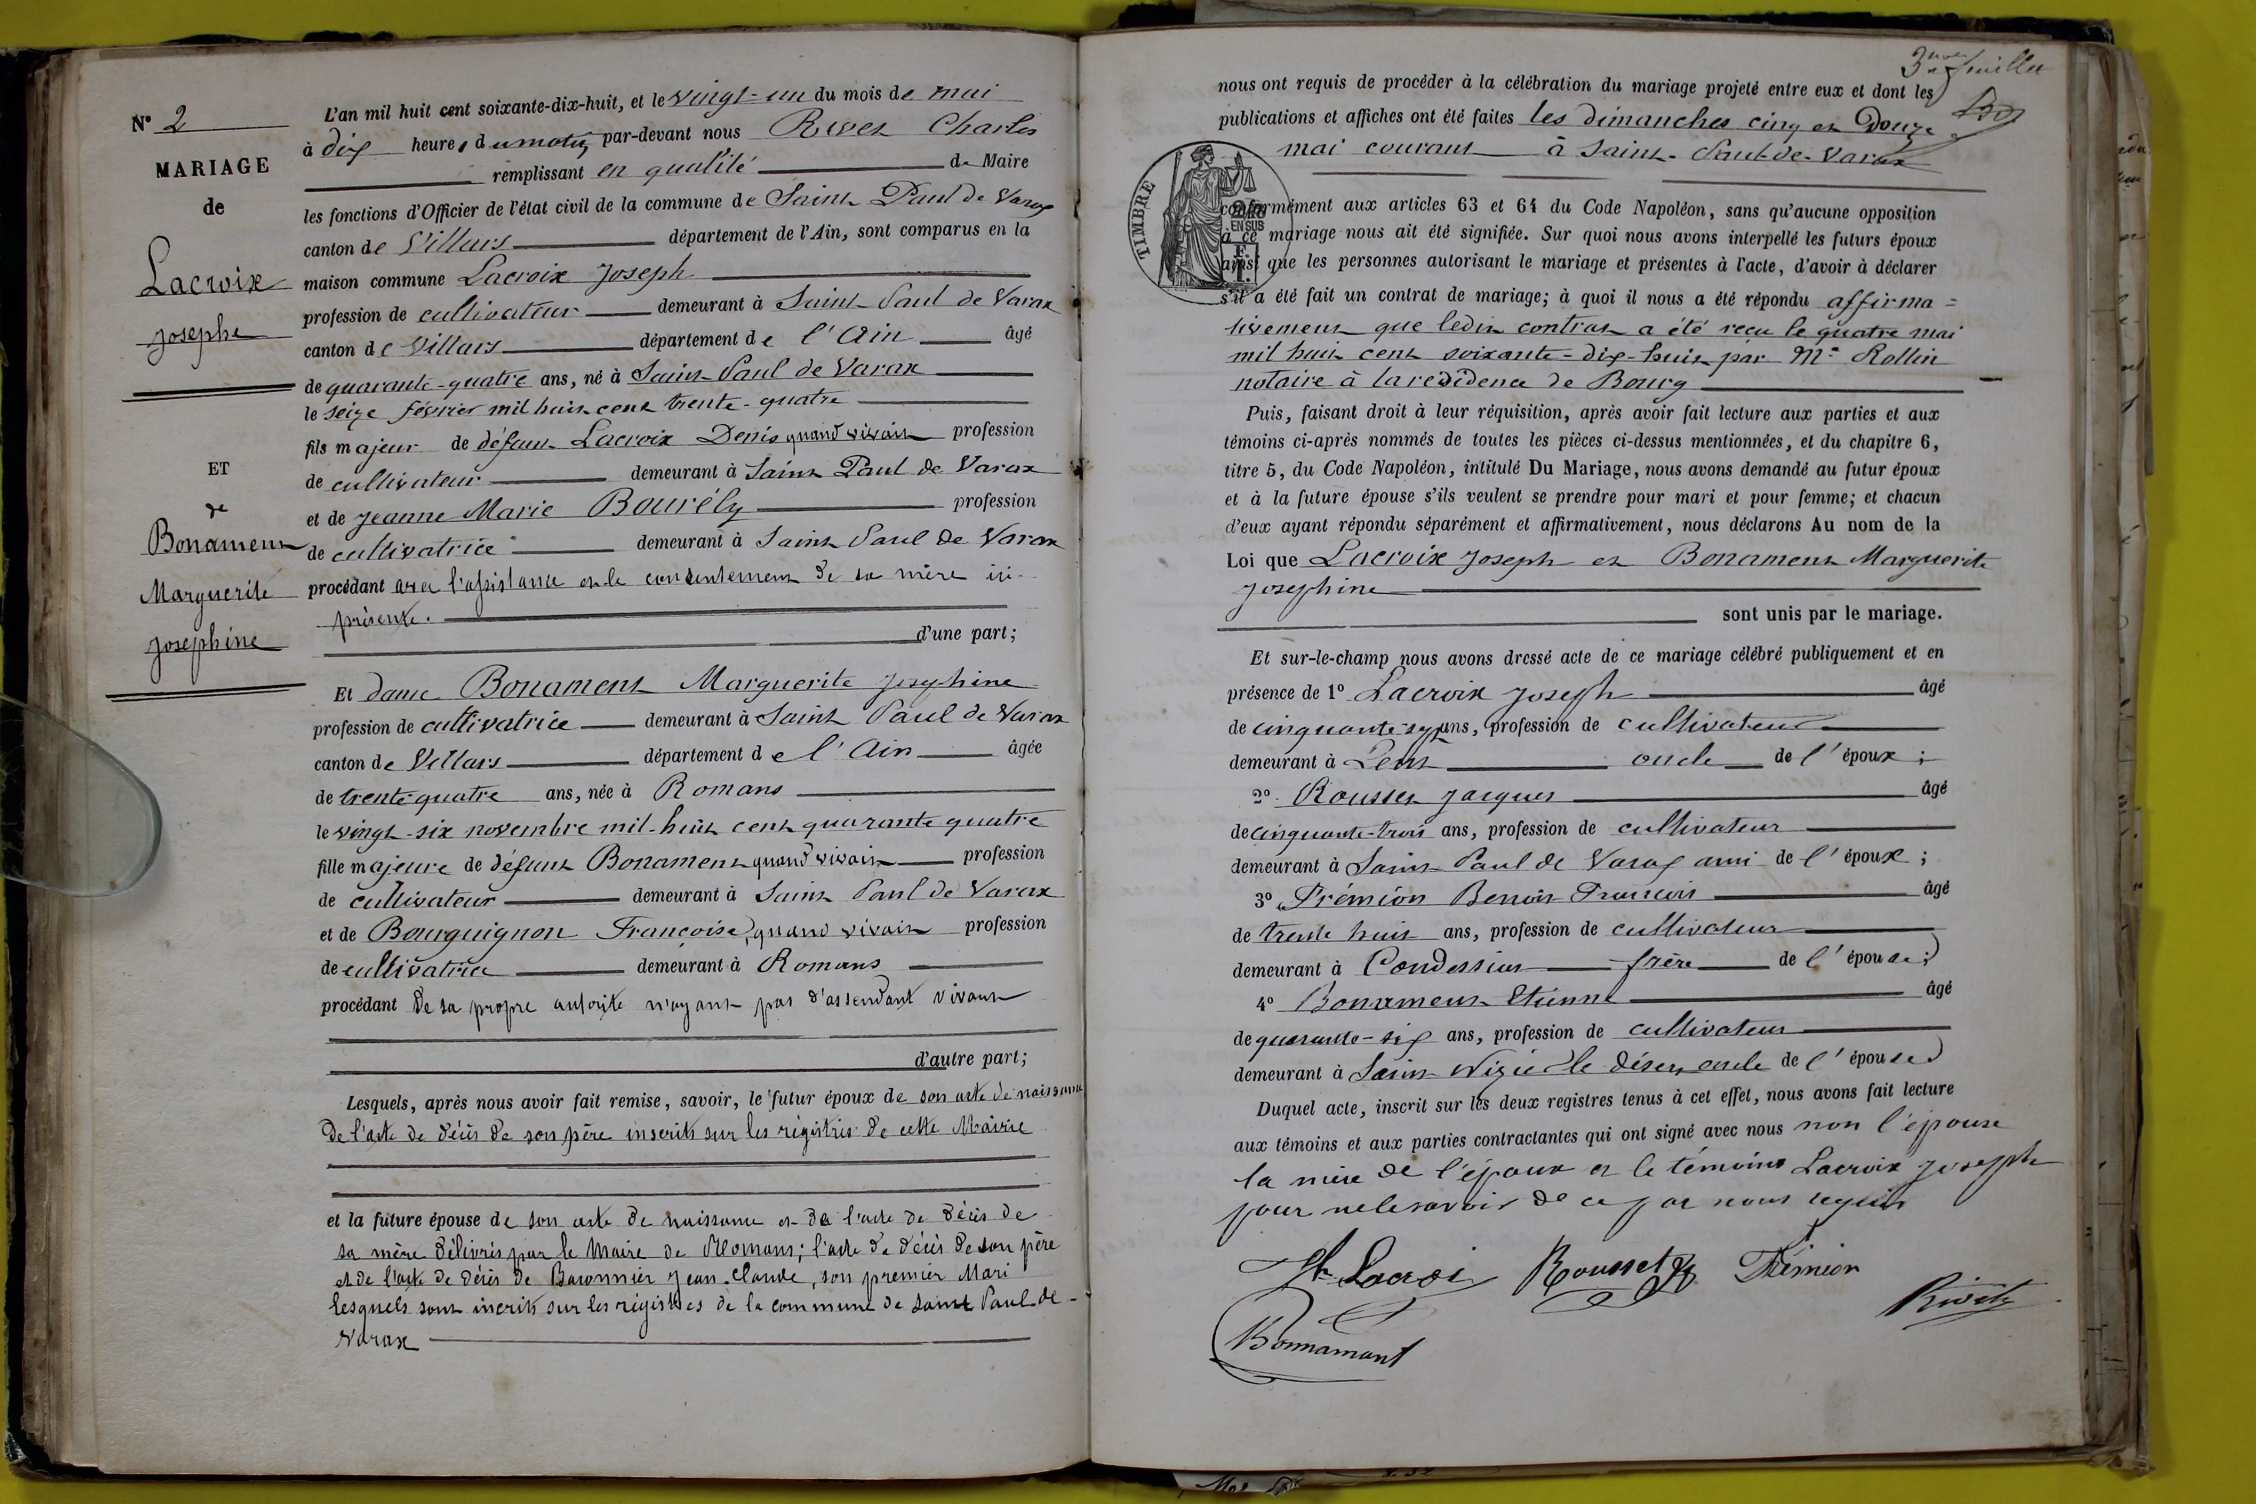 N° 2
MARIAGE
de
Lacroix
Josephe
ET
de
Bonament
Marguerite
Josephine
L'an mil huit cent soixante-dix-huit, et le vingt-un du mois de mai
à dix heures du matin, par-devant nous Rivet Charles
remplissant en qualité de Maire
les fonctions d'Officier de l'état civil de la commune de Saint Paul de Varax
canton de Villars département de l'Ain, sont comparus en la
maison commune Lacroix Joseph
profession de cultivateur demeurant à Saint Paul de Varax
canton de Villars département de l'Ain âgé
de quarante-quatre ans, né à Saint Paul de Varax
le seize février mil huit cent trente-quatre
fils majeur de défunt Lacroix Denis quand vivait profession
de cultivateur demeurant à Saint Paul de Varax
et de Jeanne Marie Bourély profession
de cultivatrice demeurant à Saint Paul de Varax
procédant avec l'assistance et le consentement de sa mère ici
présente.
d'une part;
Et dame Bonament Marguerite Josephine
profession de cultivatrice demeurant à Saint Paul de Varax
canton de Villars département de l'Ain âgée
de trente quatre ans, née à Romans
le vingt-six novembre mil-huit cent quarante quatre
fille majeure de défunt Bonament quand vivait profession
de cultivateur demeurant à Saint Paul de Varax
et de Bourguignon Françoise, quand vivait profession
de cultivatrice demeurant à Romans
procédant de sa propre autorité n'ayant pas d'assendant vivant
d'autre part;
Lesquels, après nous avoir fait remise, savoir, le futur époux de son acte de naissance
de l'acte de décès de son père inscrits sur les régistres de cette Mairie
et la future épouse de son acte de naissance et de l'acte de décès de
sa mère délivrés par le Maire de Romans; l'acte de décès de son père
et de l'acte de décès de Baronnier Jean-Claude, son premier Mari
lesquels sont incrits sur les régistres de la commune de Saint Paul de
Varax
3me feuillet
nous ont requis de procéder à la célébration du mariage projeté entre eux et dont les
publications et affiches ont été faites les dimanches cinq et Douze
mai courant à Saint-Paul-de-Varax
TIMBRE
2/10 EN SUS
conformément aux articles 63 et 64 du Code Napoléon, sans qu'aucune opposition
à ce mariage nous ait été signifiée. Sur quoi nous avons interpellé les futurs époux
ainsi que les personnes autorisant le mariage et présentes à l'acte, d'avoir à déclarer
s'il a été fait un contrat de mariage; à quoi il nous a été répondu affirma=
tivement que ledit contrat a été reçu le quatre mai
mil huit cent soixante-dix-huit par Me Rollin
notaire à la residence de Bourg
Puis, faisant droit à leur réquisition, après avoir fait lecture aux parties et aux
témoins ci-après nommés de toutes les pièces ci-dessus mentionnées, et du chapitre 6,
titre 5, du Code Napoléon, intitulé Du Mariage, nous avons demandé au futur époux
et à la future épouse s'ils veulent se prendre pour mari et pour femme; et chacun
d'eux ayant répondu séparément et affirmativement, nous déclarons Au nom de la
Loi que Lacroix Joseph et Bonament Marguerite
Josephine
sont unis par le mariage.
Et sur-le-champ nous avons dressé acte de ce mariage célébré publiquement et en
présence de 1° Lacroix Joseph âgé
de cinquante-sept ans, profession de cultivateur
demeurant à Lent oncle de l'époux;
2° Rousset Jacques âgé
de cinquante-trois ans, profession de cultivateur
demeurant à Saint Paul de Varax ami de l'époux;
3° Frémion Benoît François âgé
de trente huit ans, profession de cultivateur
demeurant à Condessiat frère de l'épouse;
4° Bonament Etienne âgé
de quarante-six ans, profession de cultivateur
demeurant à Saint Nizié le désert, oncle de l'épouse
Duquel acte, inscrit sur les deux registres tenus à cet effet, nous avons fait lecture
aux témoins et aux parties contractantes qui ont signé avec nous non l'épouse
la mère de l'époux et le témoins Lacroix Joseph
pour ne le savoir de ce par nous requis
Jh Lacroi Rousset Frémion
Rivet
Bonnamant